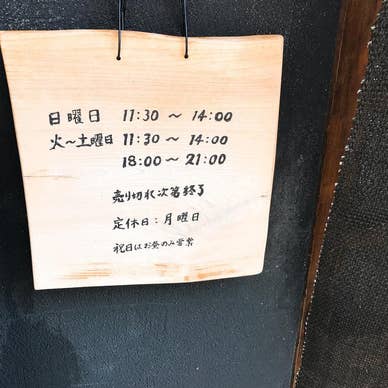 日曜日 11:30 〜 14:00
火〜土曜日 11:30 〜 14:00
18:00〜21:00
売り切れ次第終了
定休日:月曜日
祝日はお昼のみ営業